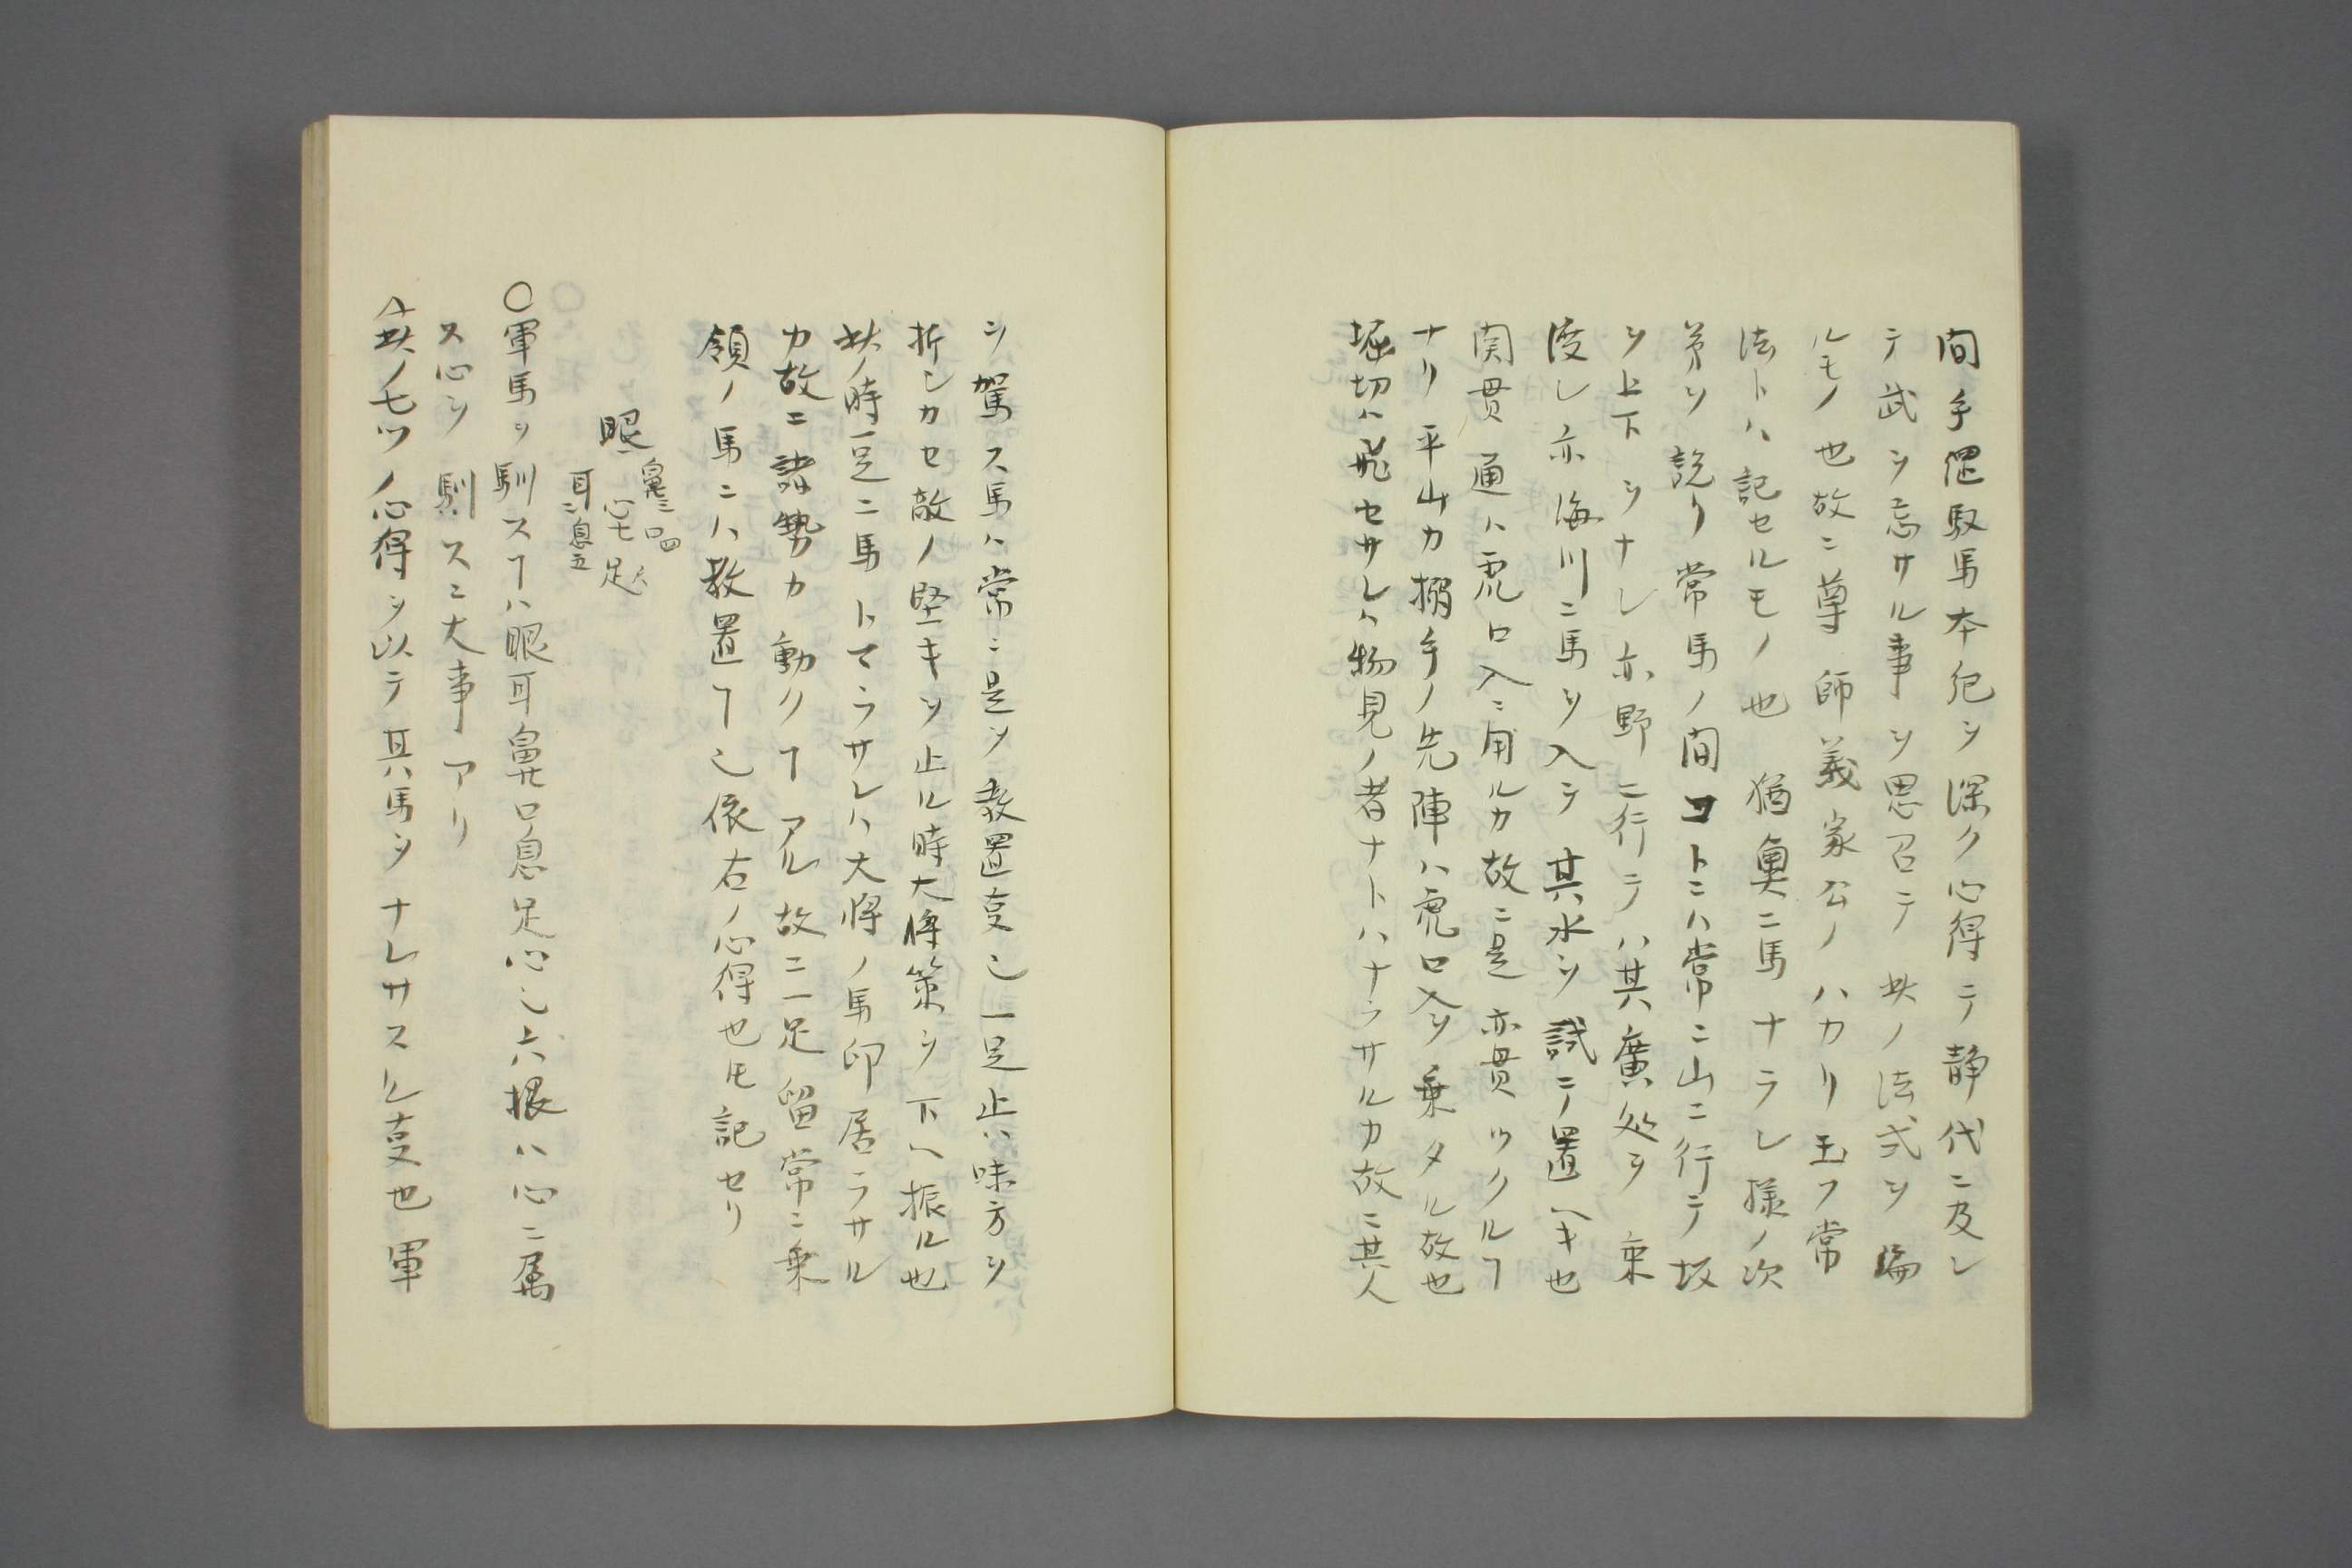 間手綱馭馬本紀ヲ深ク心得テ静代ニ及レ
テ武ヲ忘サル事ヲ思召テ此ノ法式ヲ編
ルモノ也故ニ尊師義家公ノハカリ玉フ常
法トハ記セルモノ也猶奥ニ馬ナラレ様ノ次
第ヲ説リ常馬ノ間コトニハ常ニ山ニ行テ坂
ヲ上下ヲナレ亦野ニ行テハ其廣処ヲ乗
渡レ亦海川ニ馬ヲ入テ其水ヲ試テ置ヘキ也
関貫通ハ虎口入ニ用ルカ故ニ是亦貫ツクルヿ
ナリ平山カ搦手ノ先陣ハ虎口入ヲ乗タル故也
堀切ハ飛セサレハ物見ノ者ナトハナラサルカ故ニ其人
ヲ駕ス馬ハ常ニ是ヲ教置叓也一足止ハ味方ヲ
折シカセ敵ノ堅キヲ止ル時大将策ヲ下ヘ振ル也
此ノ時一足ニ馬トマラサレハ大将ノ馬印居ラサル
カ故ニ諸勢カ動クヿアル故ニ一足留常ニ乗
領ノ馬ニハ教置ヿ也依右ノ心得也ト記セリ
眼一 鼻三 口四 心七 足六 耳二 息五
〇軍馬ヲ馴スヿハ眼耳鼻口息足心也六根ハ心ニ属
ス心ヲ馴スニ大事アリ
此ノ七ツノ心得ヲ以テ其馬ヲナレサスル叓也軍